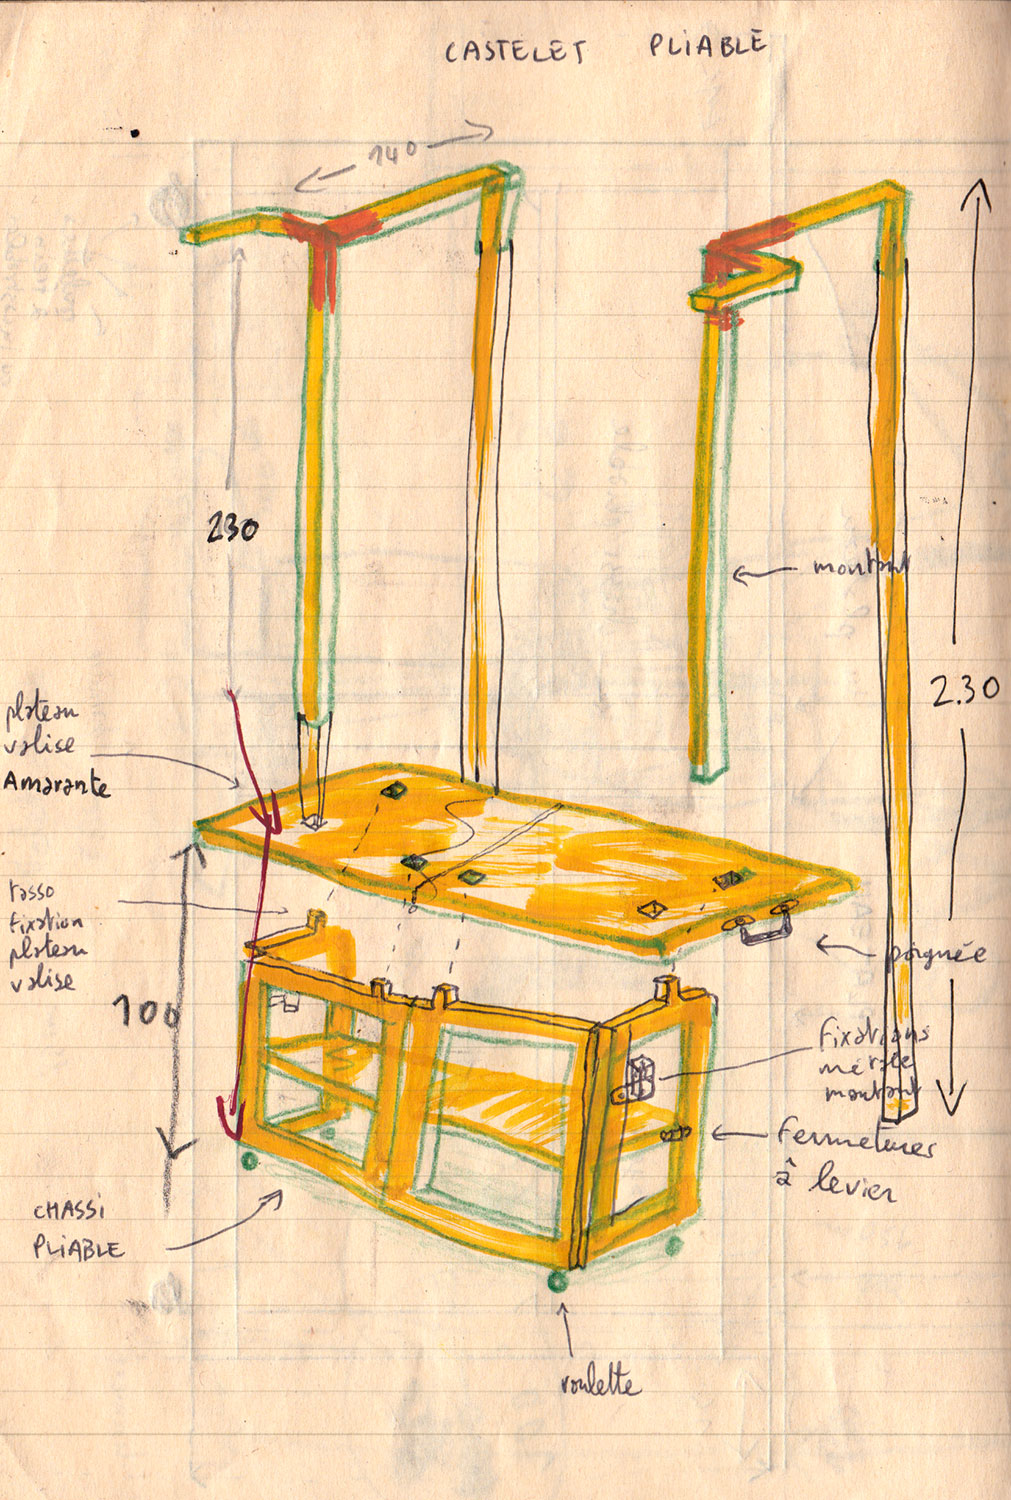 CASTELET PLIABLE
140
230
montant
2.30
plateau
valise
Amarante
tasso
fixation
plateau
valise
100
poignée
fixations
métale
montant
fermetures
à levier
CHASSI
PLIABLE
roulette